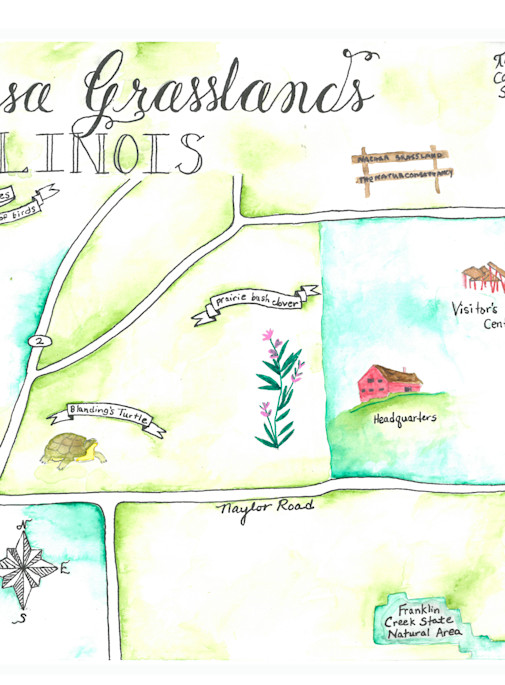 sa Grasslands
LINOIS
es
birds
NACHUSA GRASSLAND
THE NATURE CONSERVANCY
prairie bush clover
Visitor's
Cent
2
Headquarters
Blanding's Turtle
Naylor Road
N
E
S
Franklin
Creek State
Natural Area